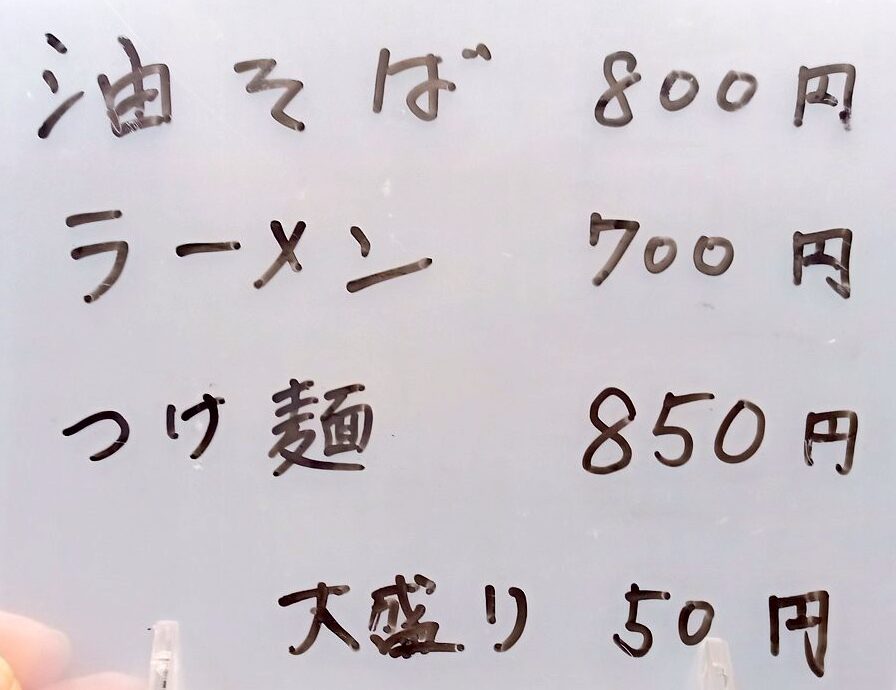 油そば 800円
ラーメン 700円
つけ麺 850円
大盛り 50円